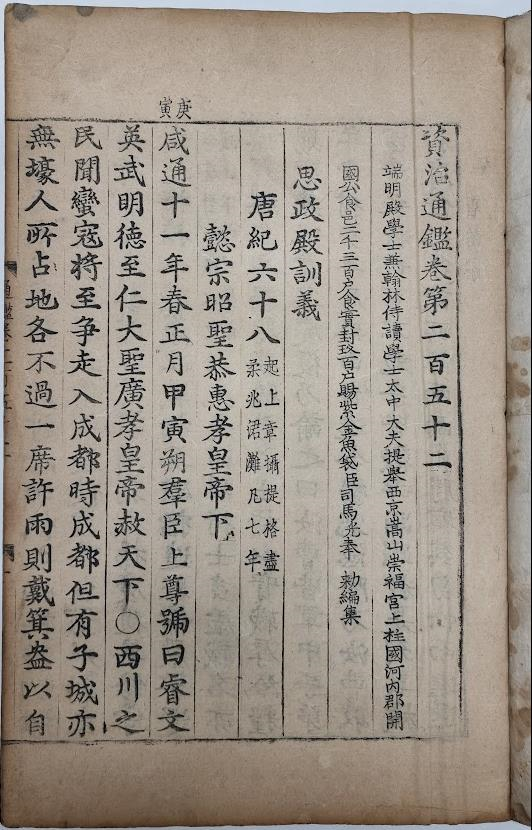 庚寅
資治通鑑卷第二百五十二
端明殿學士兼翰林侍讀學士太中大夫提舉西京嵩山崇福宮上柱國河內郡開
國公食邑二千三百户食實封玖百户賜紫金魚袋臣司馬光奉 勑編集
思政殿訓義
唐紀六十八 起上章攝提格盡
柔兆涒灘凡七年
懿宗昭聖恭惠孝皇帝下
咸通十一年春正月甲寅朔羣臣上尊號曰睿文
英武明德至仁大聖廣孝皇帝赦天下○西川之
民聞蠻寇將至爭走入成都時成都但有子城亦
無壕人所占地各不過一席許雨則戴箕盎以自